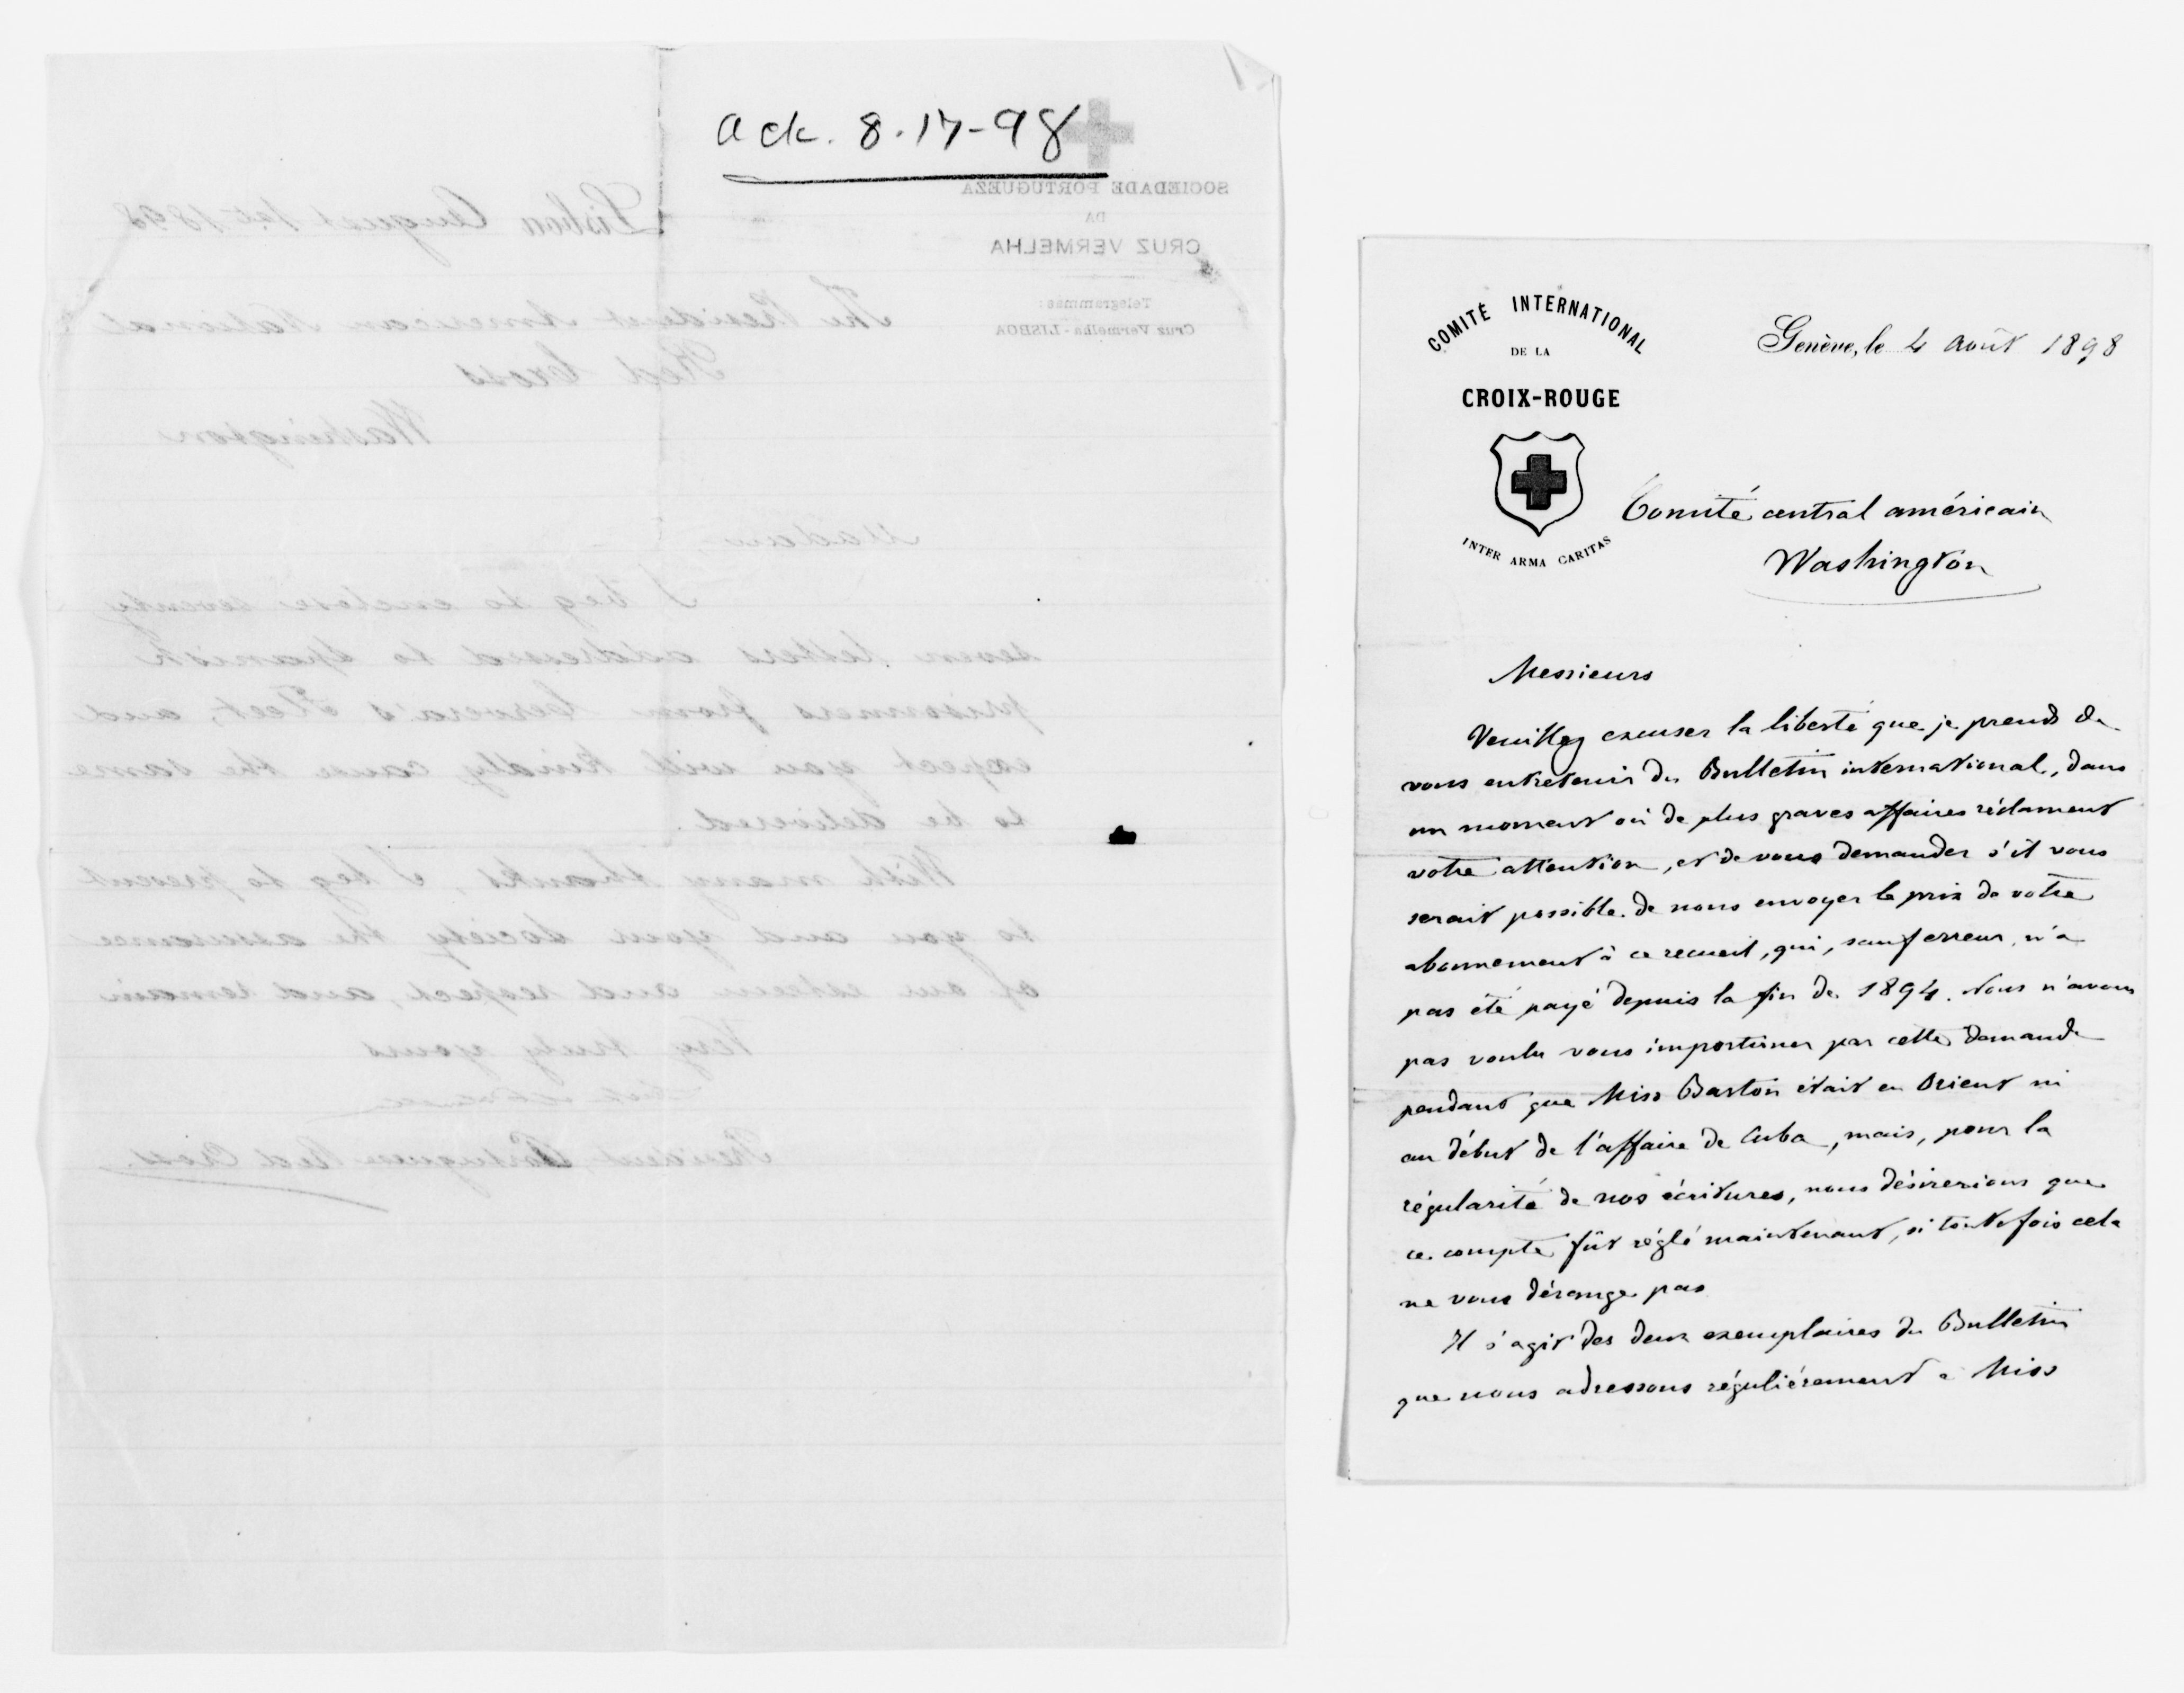 Ack. 8.17-98
SOCIEDADE PORTUGUEZA
DA
CRUZ VERMELHA
Telegrammas:
Cruz Vermelha - LISBOA
Lisbon August 1st 1898
The President American National
Red Cross
Washington
Madam,
I beg to enclose seventy
seven letters addressed to Spanish
prisoners from Cervera's Fleet, and
expect you will kindly cause the same
to be delivered.
With many thanks, I beg to present
to you and your Society the assurance
of our esteem and respect, and remain
Very truly yours
President, Portuguese Red Cross.
COMITÉ INTERNATIONAL
DE LA
CROIX-ROUGE
INTER ARMA CARITAS
Genève, le 4 août 1898
Comité central américain
Washington
Messieurs
Veuillez excuser la liberté que je prends de
vous entretenir du Bulletin international, dans
un moment où de plus graves affaires réclament
votre attention, et de vous demander s'il vous
serait possible de nous envoyer le prix de votre
abonnement à ce recueil, qui, sauf erreur, n'a
pas été payé depuis la fin de 1894. Nous n'avons
pas voulu vous importuner par cette demande
pendant que Miss Barton était en Orient ni
au début de l'affaire de Cuba, mais, pour la
régularité de nos écritures, nous désirerions que
ce compte fût réglé maintenant, si toutefois cela
ne vous dérange pas
Il s'agit des deux exemplaires du Bulletin
que nous adressons régulièrement à Miss